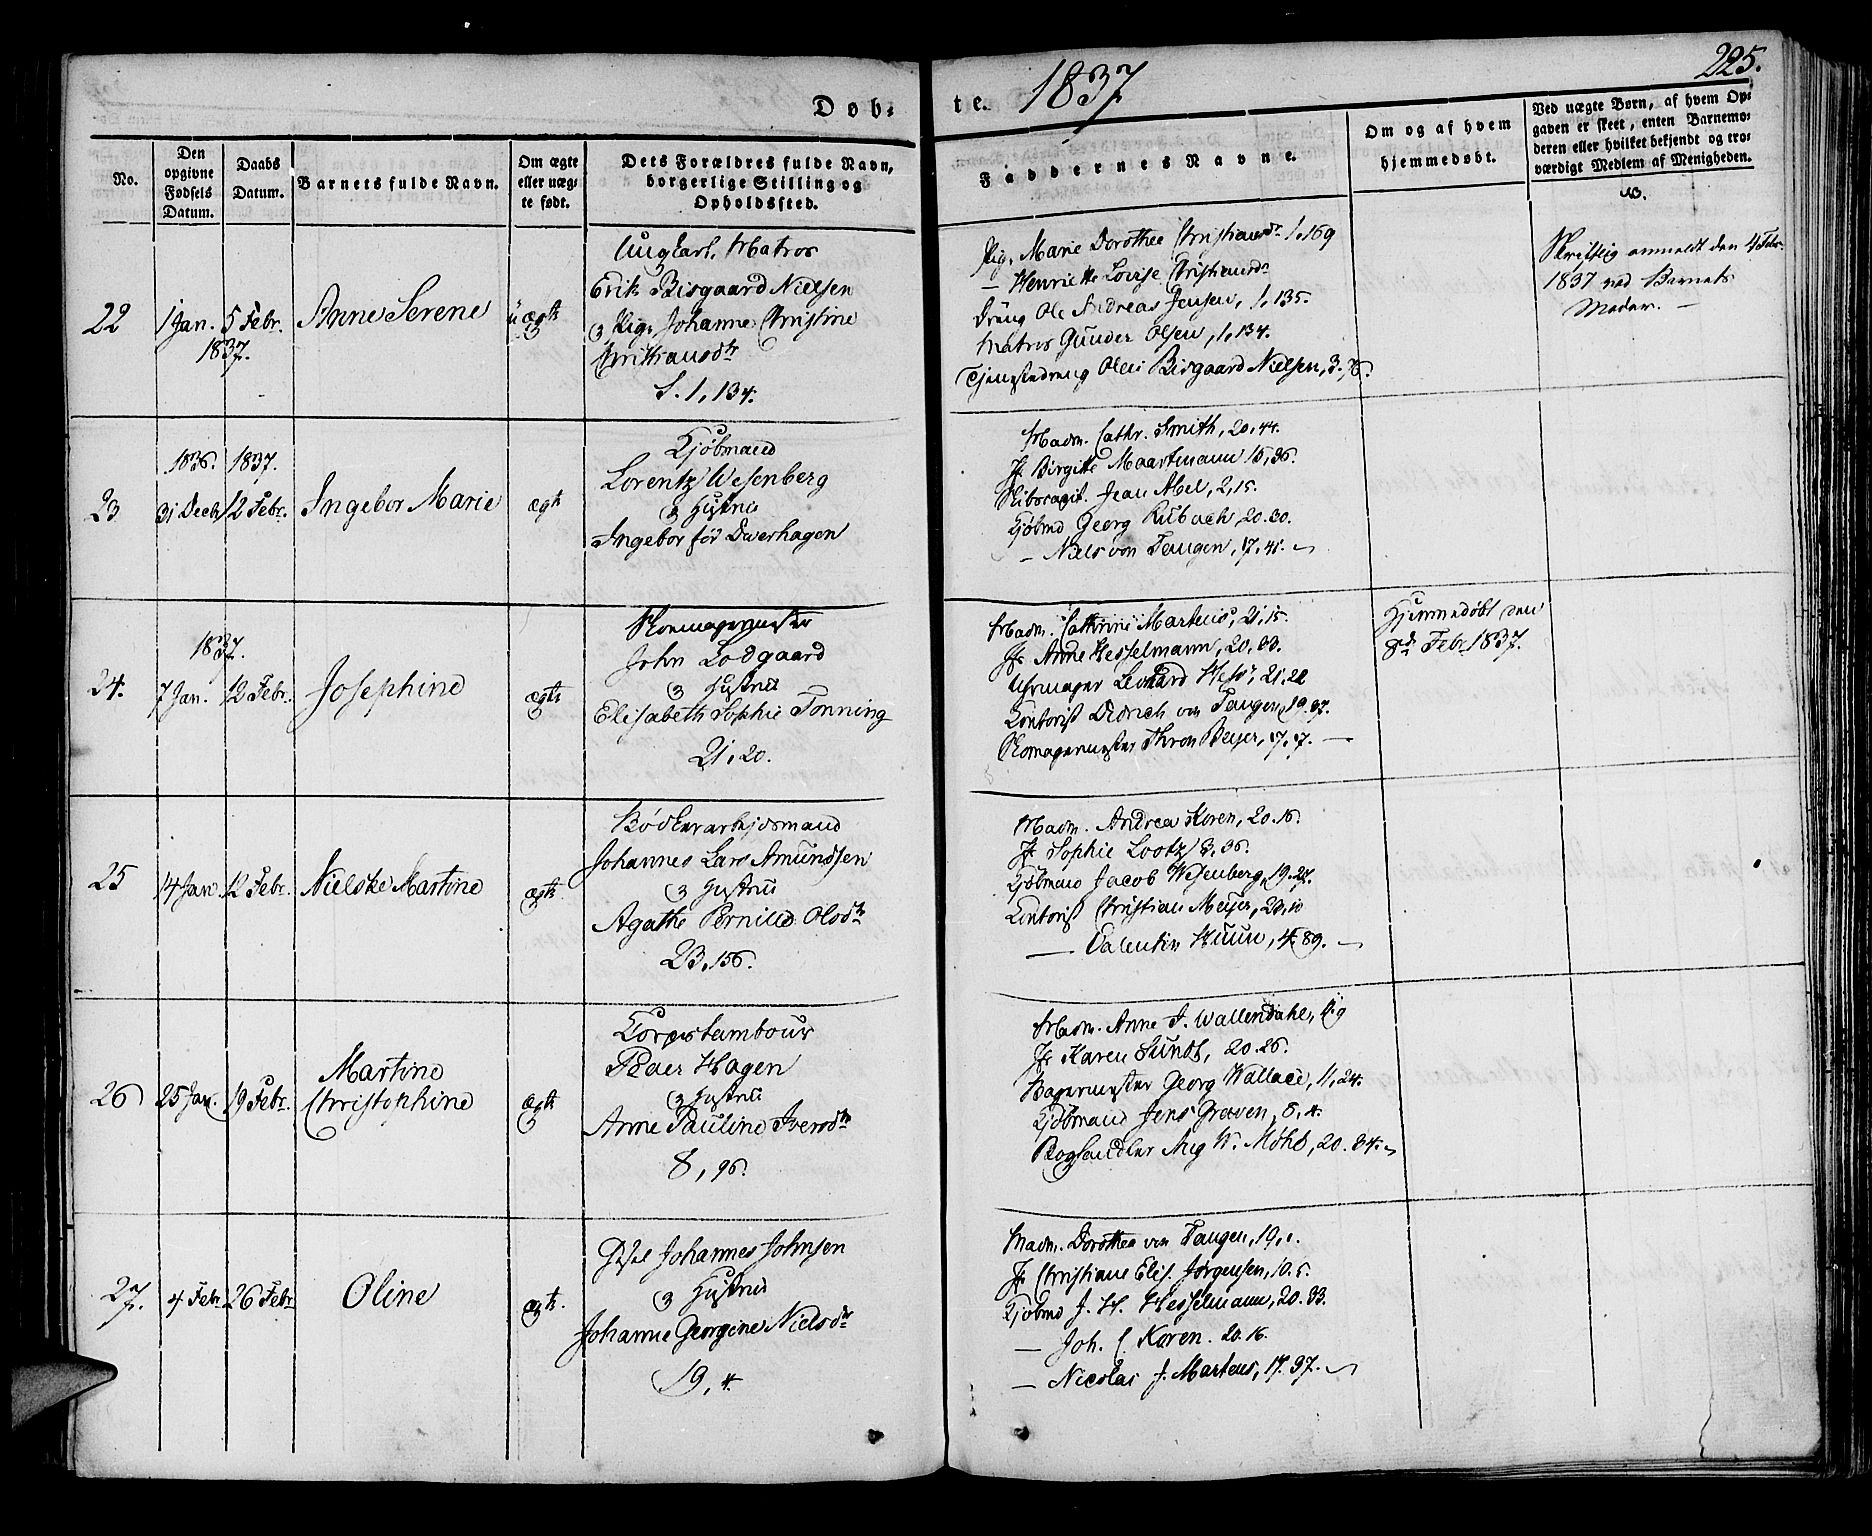 225.
Døb-
te. 1837
No.
Den opgivne Fødsels Datum.
Daabs Datum.
Barnets fulde Navn.
Om ægte eller uægte født.
Dets Forældres fulde Navn, borgerlige Stilling og Opholdssted.
Faddernes Navne.
Om og af hvem hjemmedøbt.
Ved uægte Børn, af hvem Opgaven er skeet, enten Barnemoderen eller hvilket bekjendt og troværdigt Medlem af Menigheden.
22
1 Jan.
5 Febr.
1837.
Anne Serene
uægte
Ungkarl, Matros
Erik Bisgaard Nielsen
Pige Johanne Christine
Christiansdr
S. 1, 134.
Pige Marie Dorothea Christiansdr 1, 169
— Henriette Lovise Christiansdr
Dreng Ole Andreas Jensen, 1, 135.
Matros Gunder Olsen, 1, 134.
Tjenestedreng Bisgaard Nielsen, 3,
Skriftlig anmeldt den 4 Febr.
1837 ved Barnets
Moder. —
23
1836.
31 Decb
1837.
12 Febr.
Ingebor Marie
ægte
Kjøbmand
Lorentz Wesenberg
& Hustrue
Ingebor født Dwerhagen
Madm. Cathr. Smith, 20, 44.
Jfr Birgitte Maartmann 15, 36.
Jean Abel, 2, 15.
Kjøbmd Georg Rubach 20. 30.
— Niels von Tangen, 17, 41.
24.
1837.
7 Jan.
12 Febr.
Josephine
ægte
Skomagermester
John Lodgaard
& Hustrue
Elisabeth Sophie Tonning
21, 20.
Madm. Cathrine Martens, 21, 15.
Jfr Anne Hesselmann, 20. 33.
Uhrmager Leonard Hess, 21. 22
Contorist Didrich von Tangen, 19. 37.
Skomagermester Thron Beyer, 17, 17. —
Hjemmedøbt den
8de Febr 1837.
25
14 Jan
12 Febr.
Nielske Martine
ægte
Bødkerarbejdsmand
Johannes Lars Amundsen
& Hustrue
Agathe Pernille Olsdr
23, 156.
Madm. Andrea Koren, 20. 16.
Jfr Sophie Lootz 3, 36.
Kjøbmand Jacob Wesenberg, 19. 27.
Contorist Christian Meyer, 23, 10
— Valentin Kuun, 4, 89. —
26
25 Jan.
19 Febr.
Martine
Christophine
ægte
Corpstambour
Peder Hagen
& Hustrue
Anne Pauline Iversdr
8, 96.
Madm. Anne J. Wallendahl,
Jfr Karen Sundt, 20. 26.
Bagermester Georg Wallace, 11, 24.
Kjøbmand Jens Greven, 5, 4.
Boghandler Aug W. Møhl, 20. 34.
27.
4 Febr
26 Febr
Oline
ægte.
Johannes Johnsen
& Hustrue
Johanne Georgine Nielsdr
19, 4.
Madm. Dorothea von Tangen, 19, 1.
Jfr Christiane Elis. Jørgensen, 10. 5.
Kjøbmd J. H. Hesselmann, 20. 33.
— Joh. C. Koren. 20. 16.
— Nicolai J. Martens, 17. 37.